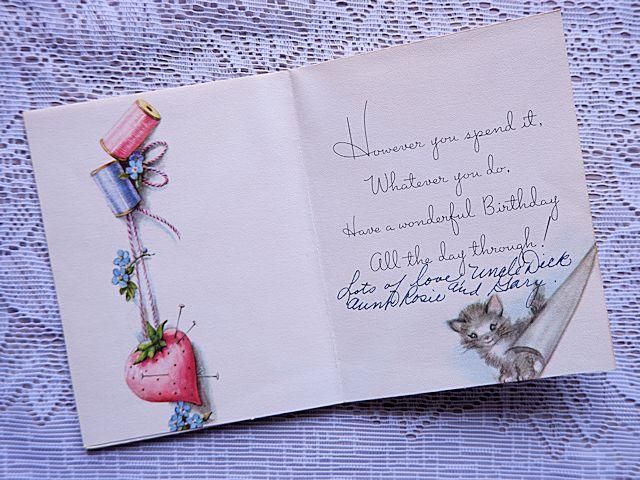 However you spend it,
Whatever you do,
Have a wonderful Birthday
All the day through!
Lots of love, Uncle Dick
Aunt Rosie and Gary.